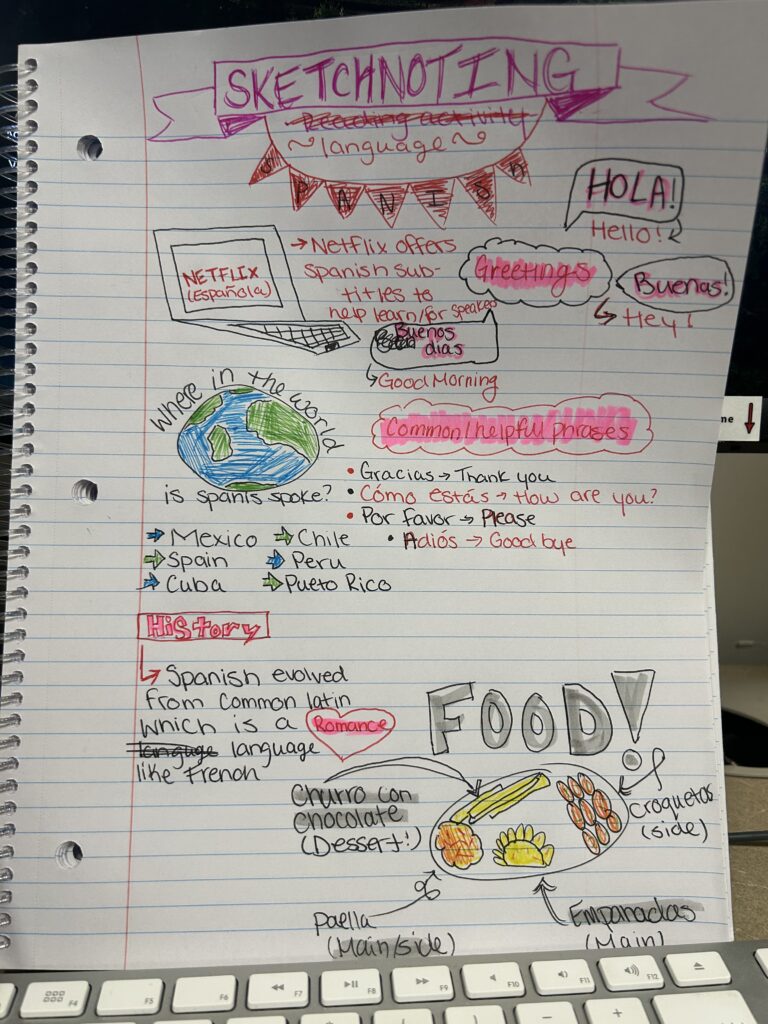 SKETCHNOTING
Reading activity
~language~
SPANISH
HOLA!
Hello!
NETFLIX
(Española)
→Netflix offers
spanish sub-
titles to
help learn/for speakers
Greetings
Buenas!
Hey!
Buenos
dias
Good Morning
Where in the world
is spanis spoke?
Common/helpful phrases
• Gracias → Thank you
• Cómo estás → How are you?
• Por Favor → Please
• Adiós → Goodbye
→ Mexico → Chile
→ Spain → Peru
→ Cuba → Pueto Rico
History
Spanish evolved
from common latin
which is a Romance
language language
like French
FOOD!
Churro con
chocolate
(Dessert!)
Croquetas
(side)
Paella
(Main/side)
Empanadas
(Main)
me
F4
F5
F6
F7
F8
F9
F10
F11
F12